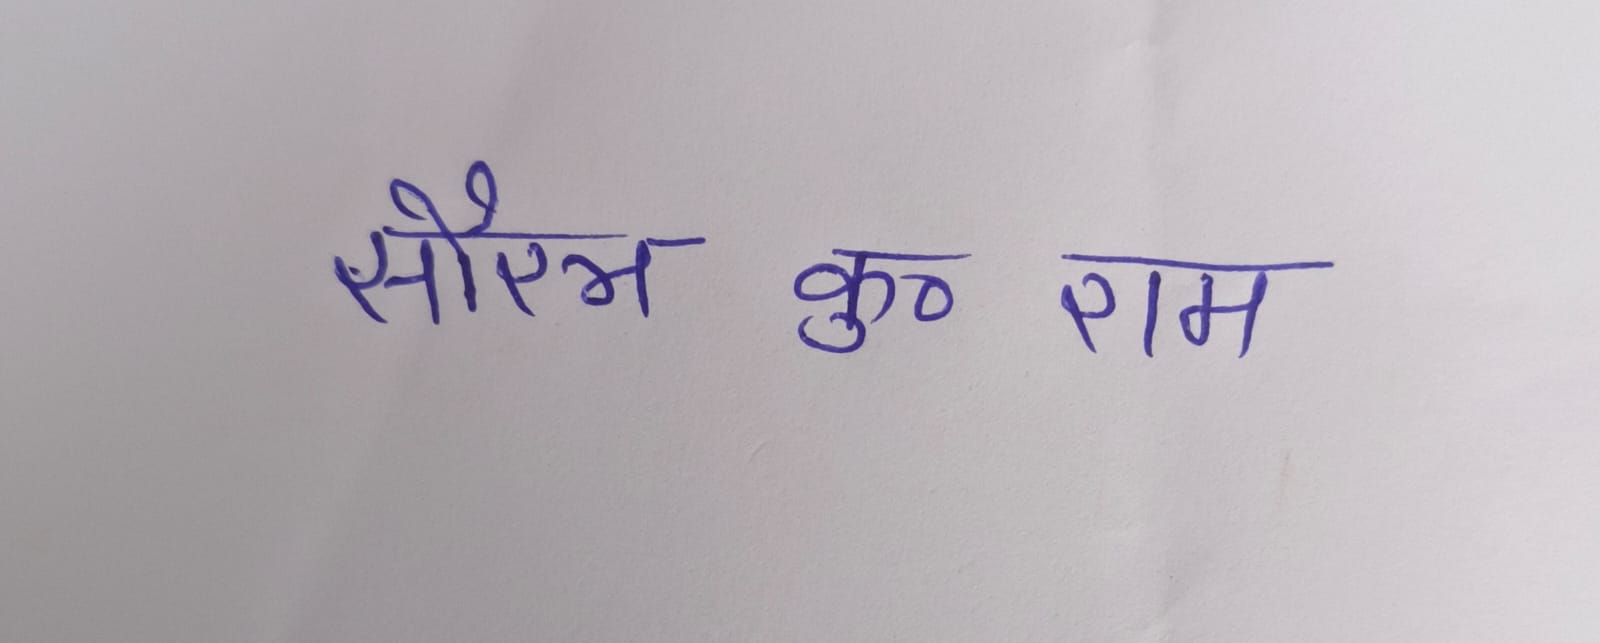 सौरभ कु० राम